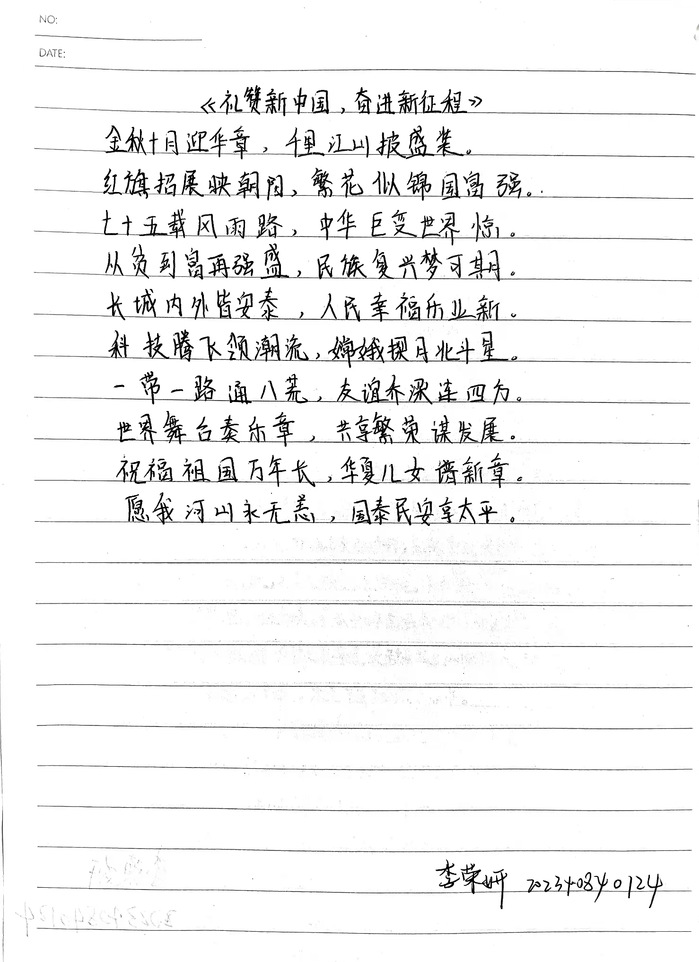 NO:
DATE:
《礼赞新中国，奋进新征程》
金秋十月迎华章，千里江山披盛装。
红旗招展映朝阳，繁花似锦国富强。
七十五载风雨路，中华巨变世界惊。
从贫到富再强盛，民族复兴梦可期。
长城内外皆安泰，人民幸福乐业新。
科技腾飞领潮流，嫦娥揽月北斗星。
一带一路通八荒，友谊桥梁连四方。
世界舞台奏乐章，共享繁荣谋发展。
祝福祖国万年长，华夏儿女谱新章。
愿我河山永无恙，国泰民安享太平。
李荣妍 202340840124